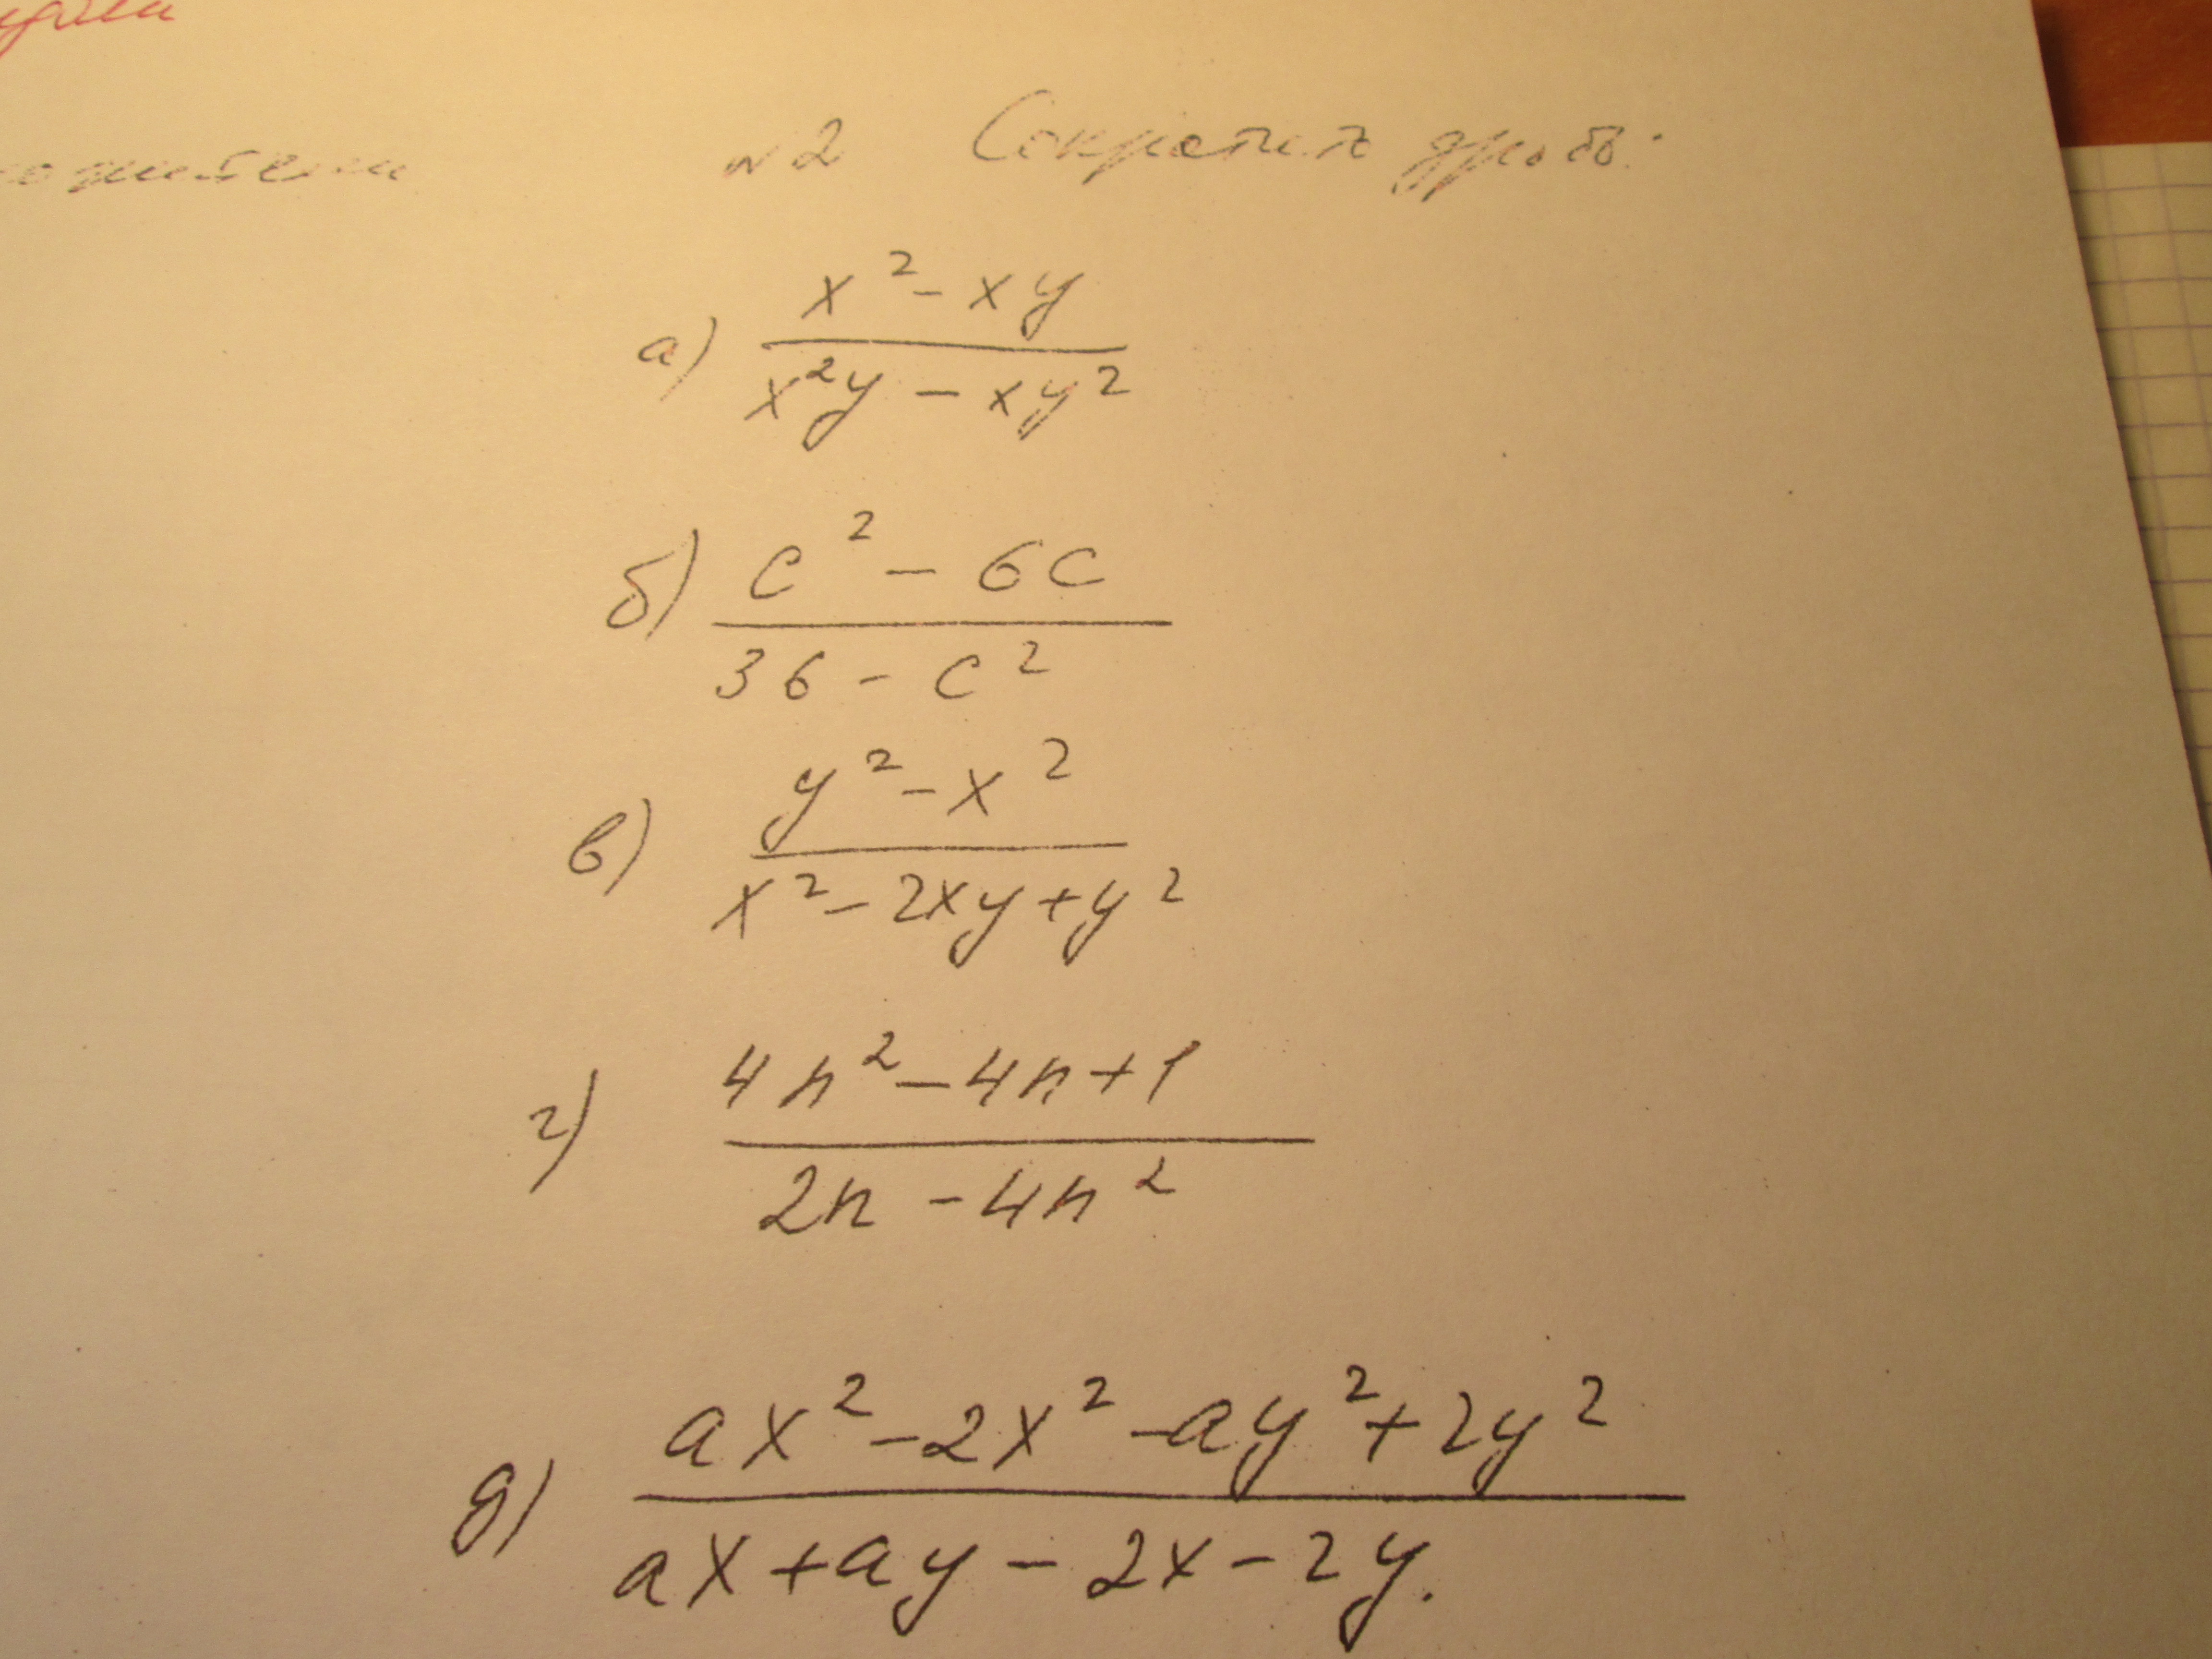 №2 Сократить дробь:
а) \frac{x^2 - xy}{x^2y - xy^2}
б) \frac{c^2 - 6c}{36 - c^2}
в) \frac{y^2 - x^2}{x^2 - 2xy + y^2}
г) \frac{4n^2 - 4n + 1}{2n - 4n^2}
д) \frac{ax^2 - 2x^2 - ay^2 + 2y^2}{ax + ay - 2x - 2y}.